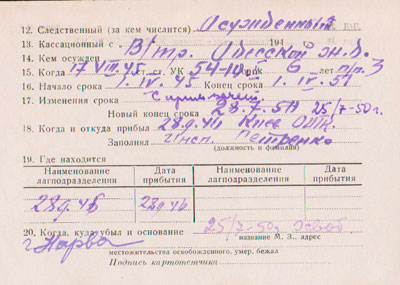 12. Следственный (за кем числится) Осужденный
13. Кассационный с 194
14. Кем осужден В/тр. Одесской ж.д.
15. Когда 17 VIII. 45 ст. УК 54-10 срок 6 лет п/п. 3
16. Начало срока 1. IV. 45 Конец срока 1. IV. 51
17. Изменения срока
Новый конец срока 28.7.50 25/7-50 г.
18. Когда и откуда прибыл 28.9.46
Заполнил Петренко
(должность и фамилия)
19. Где находится
Наименование лагподразделения Дата прибытия Наименование лагподразделения Дата прибытия
28.9.46 28.9.46
20. Когда, куда убыл и основание 25/7-50г. освоб
г. Нарва название М. З., адрес
местожительства освобожденного, умер, бежал
Подпись картотетчика